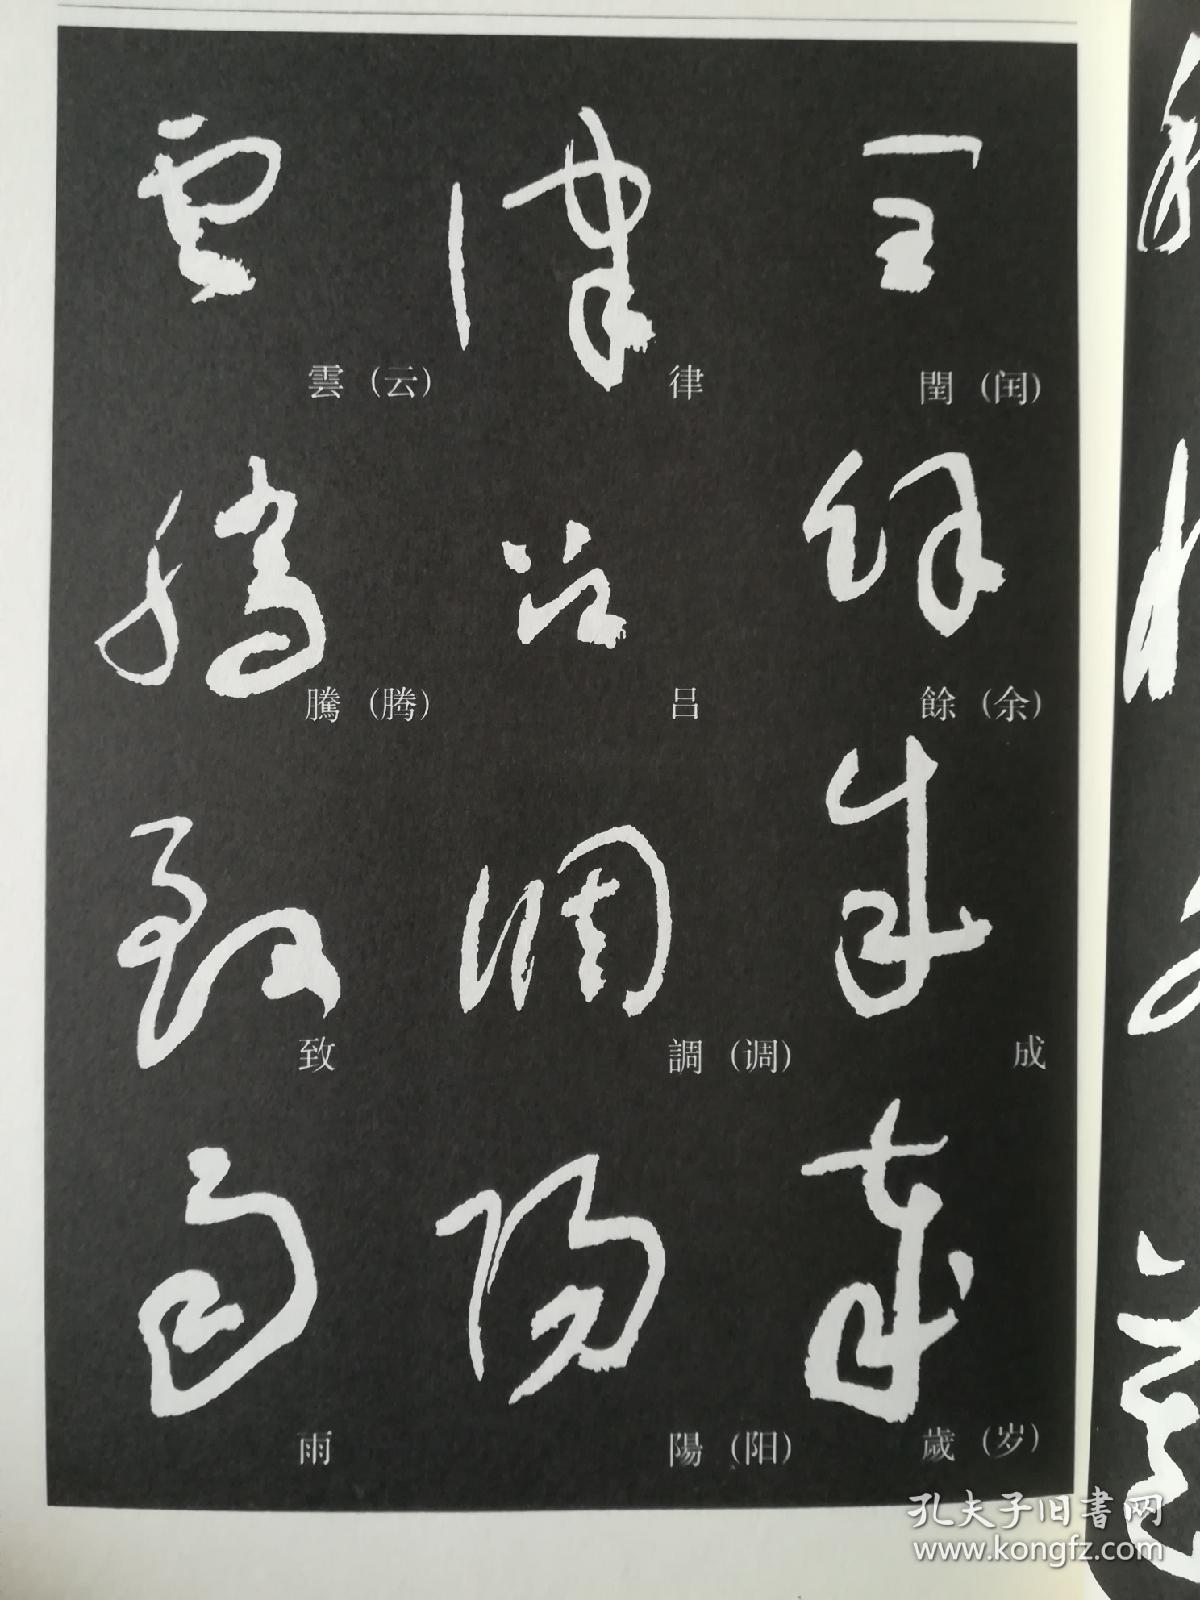 閏（闰）
餘（余）
成
歲（岁）
律
吕
調（调）
陽（阳）
雲（云）
騰（腾）
致
雨
孔夫子旧书网
www.kongfz.com